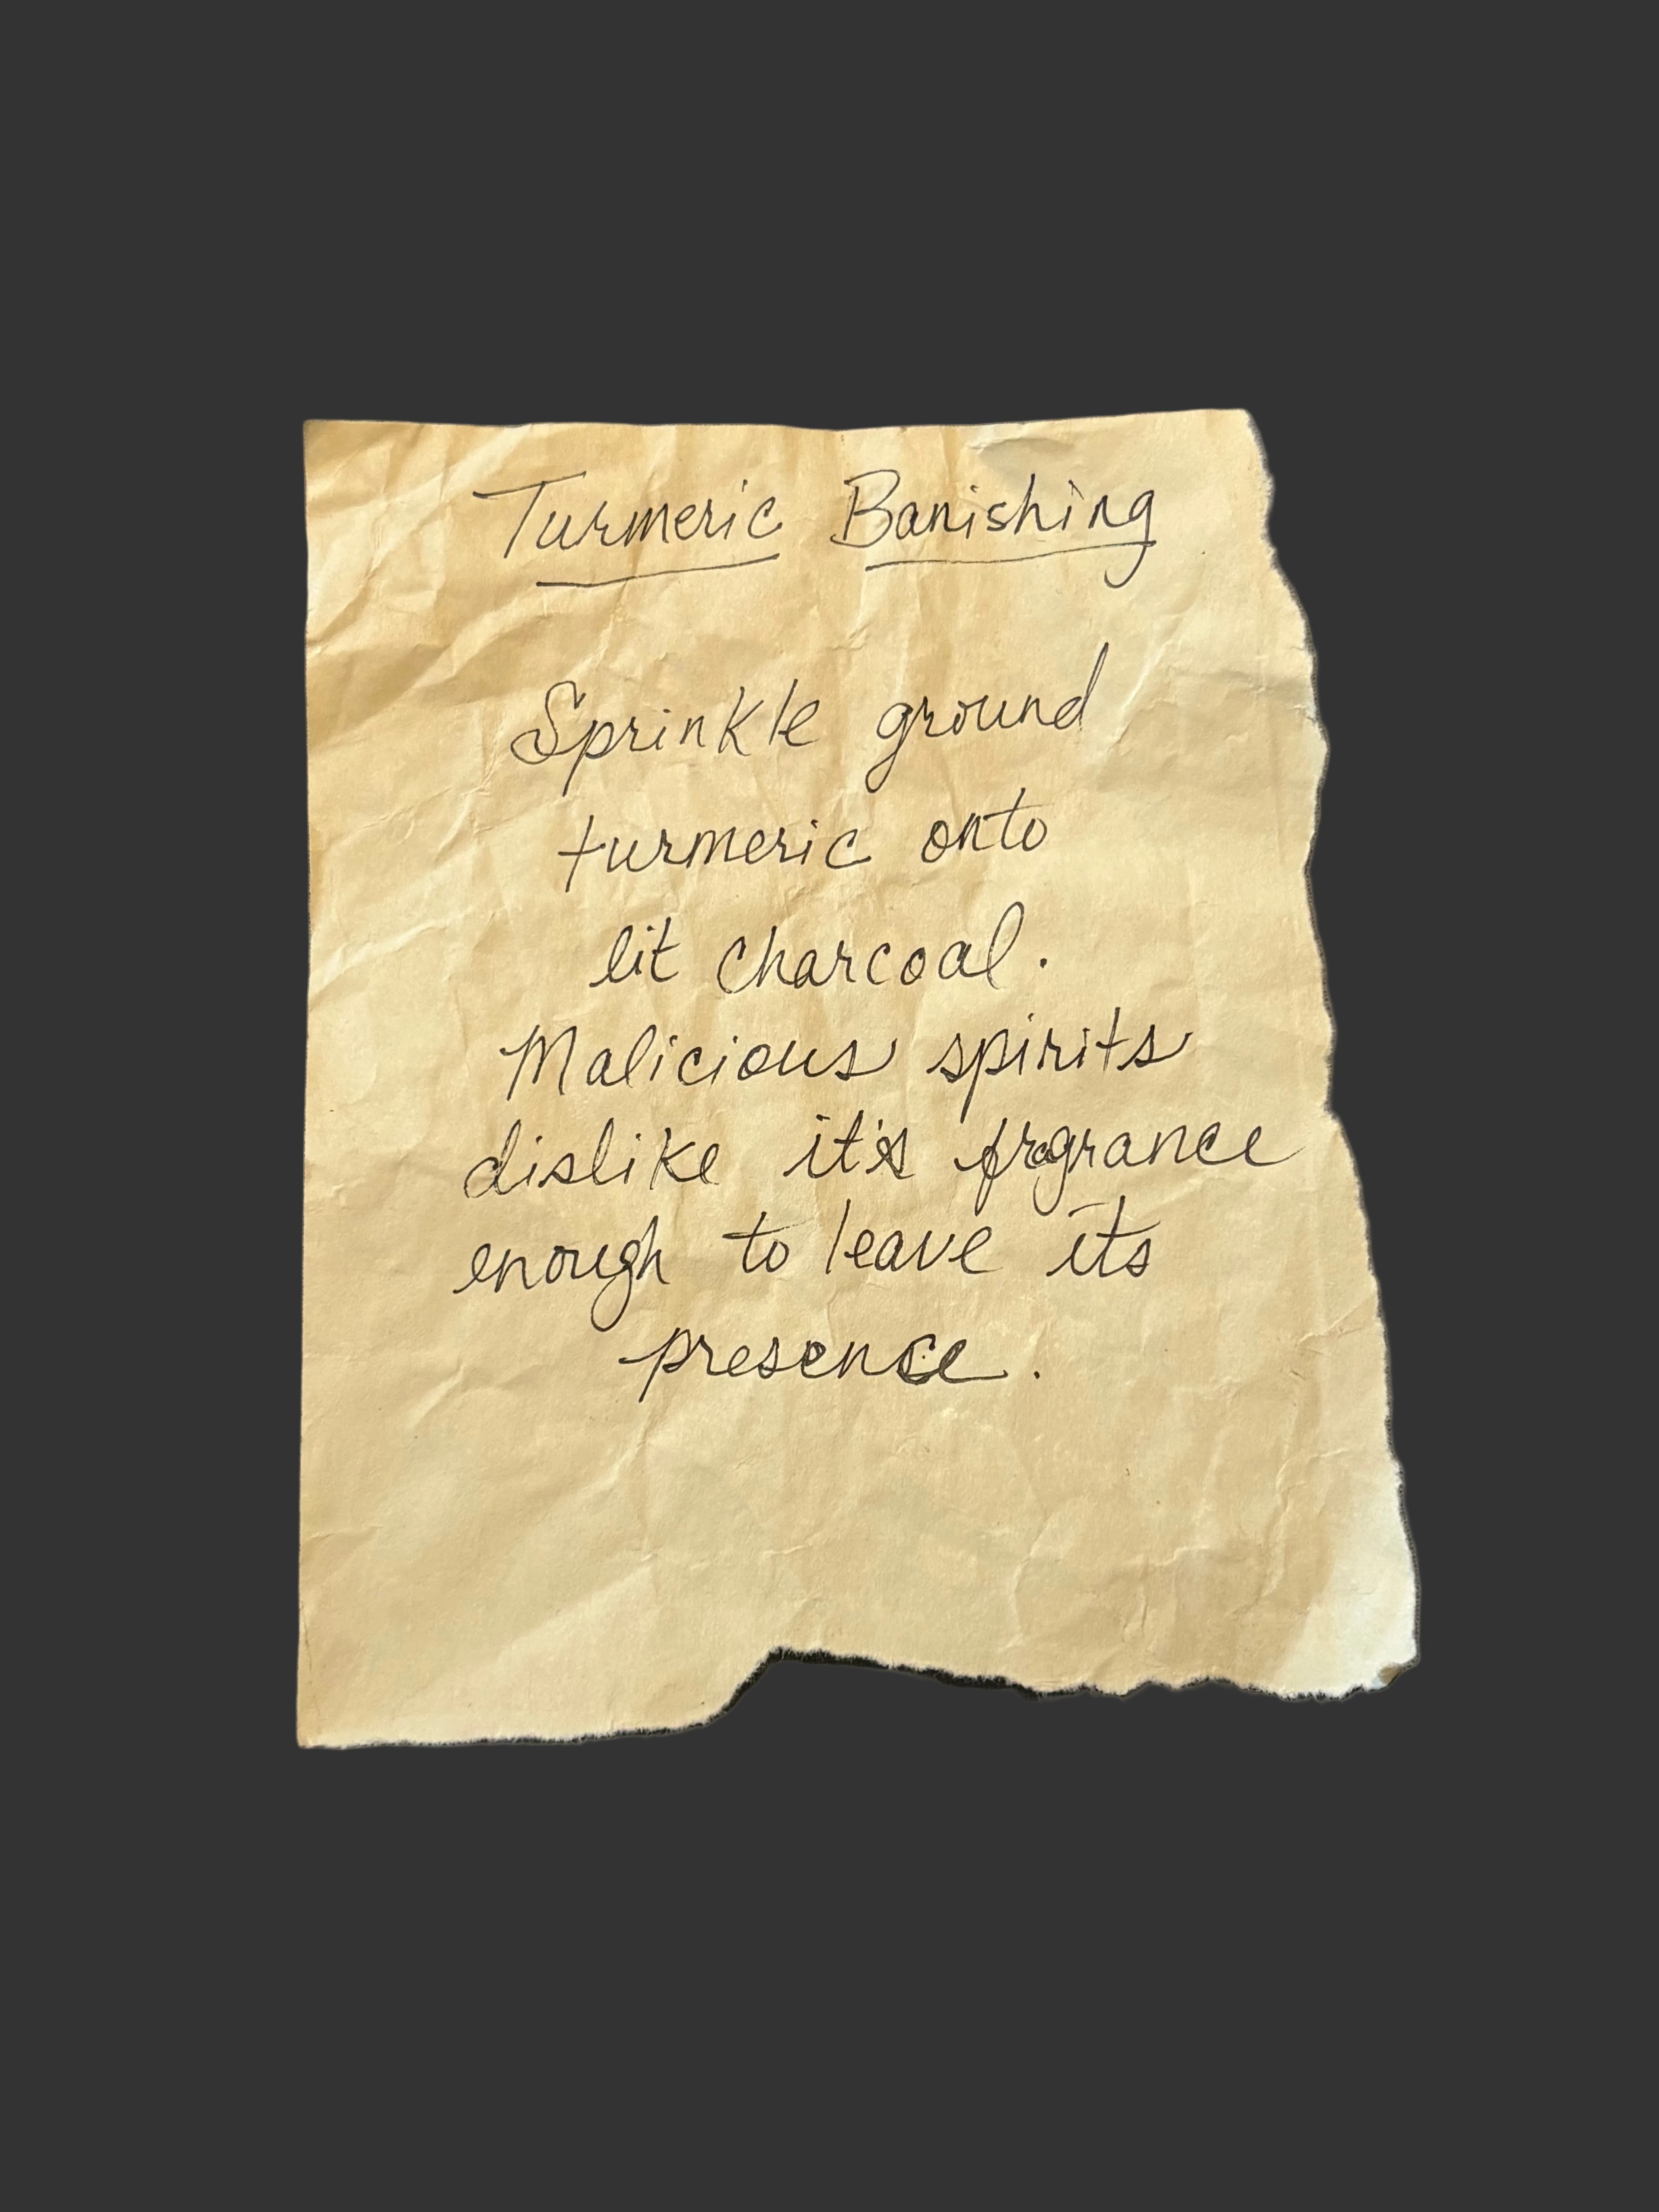 Turmeric Banishing
Sprinkle ground
turmeric onto
lit charcoal.
Malicious spirits
dislike it's fragrance
enough to leave its
presence.